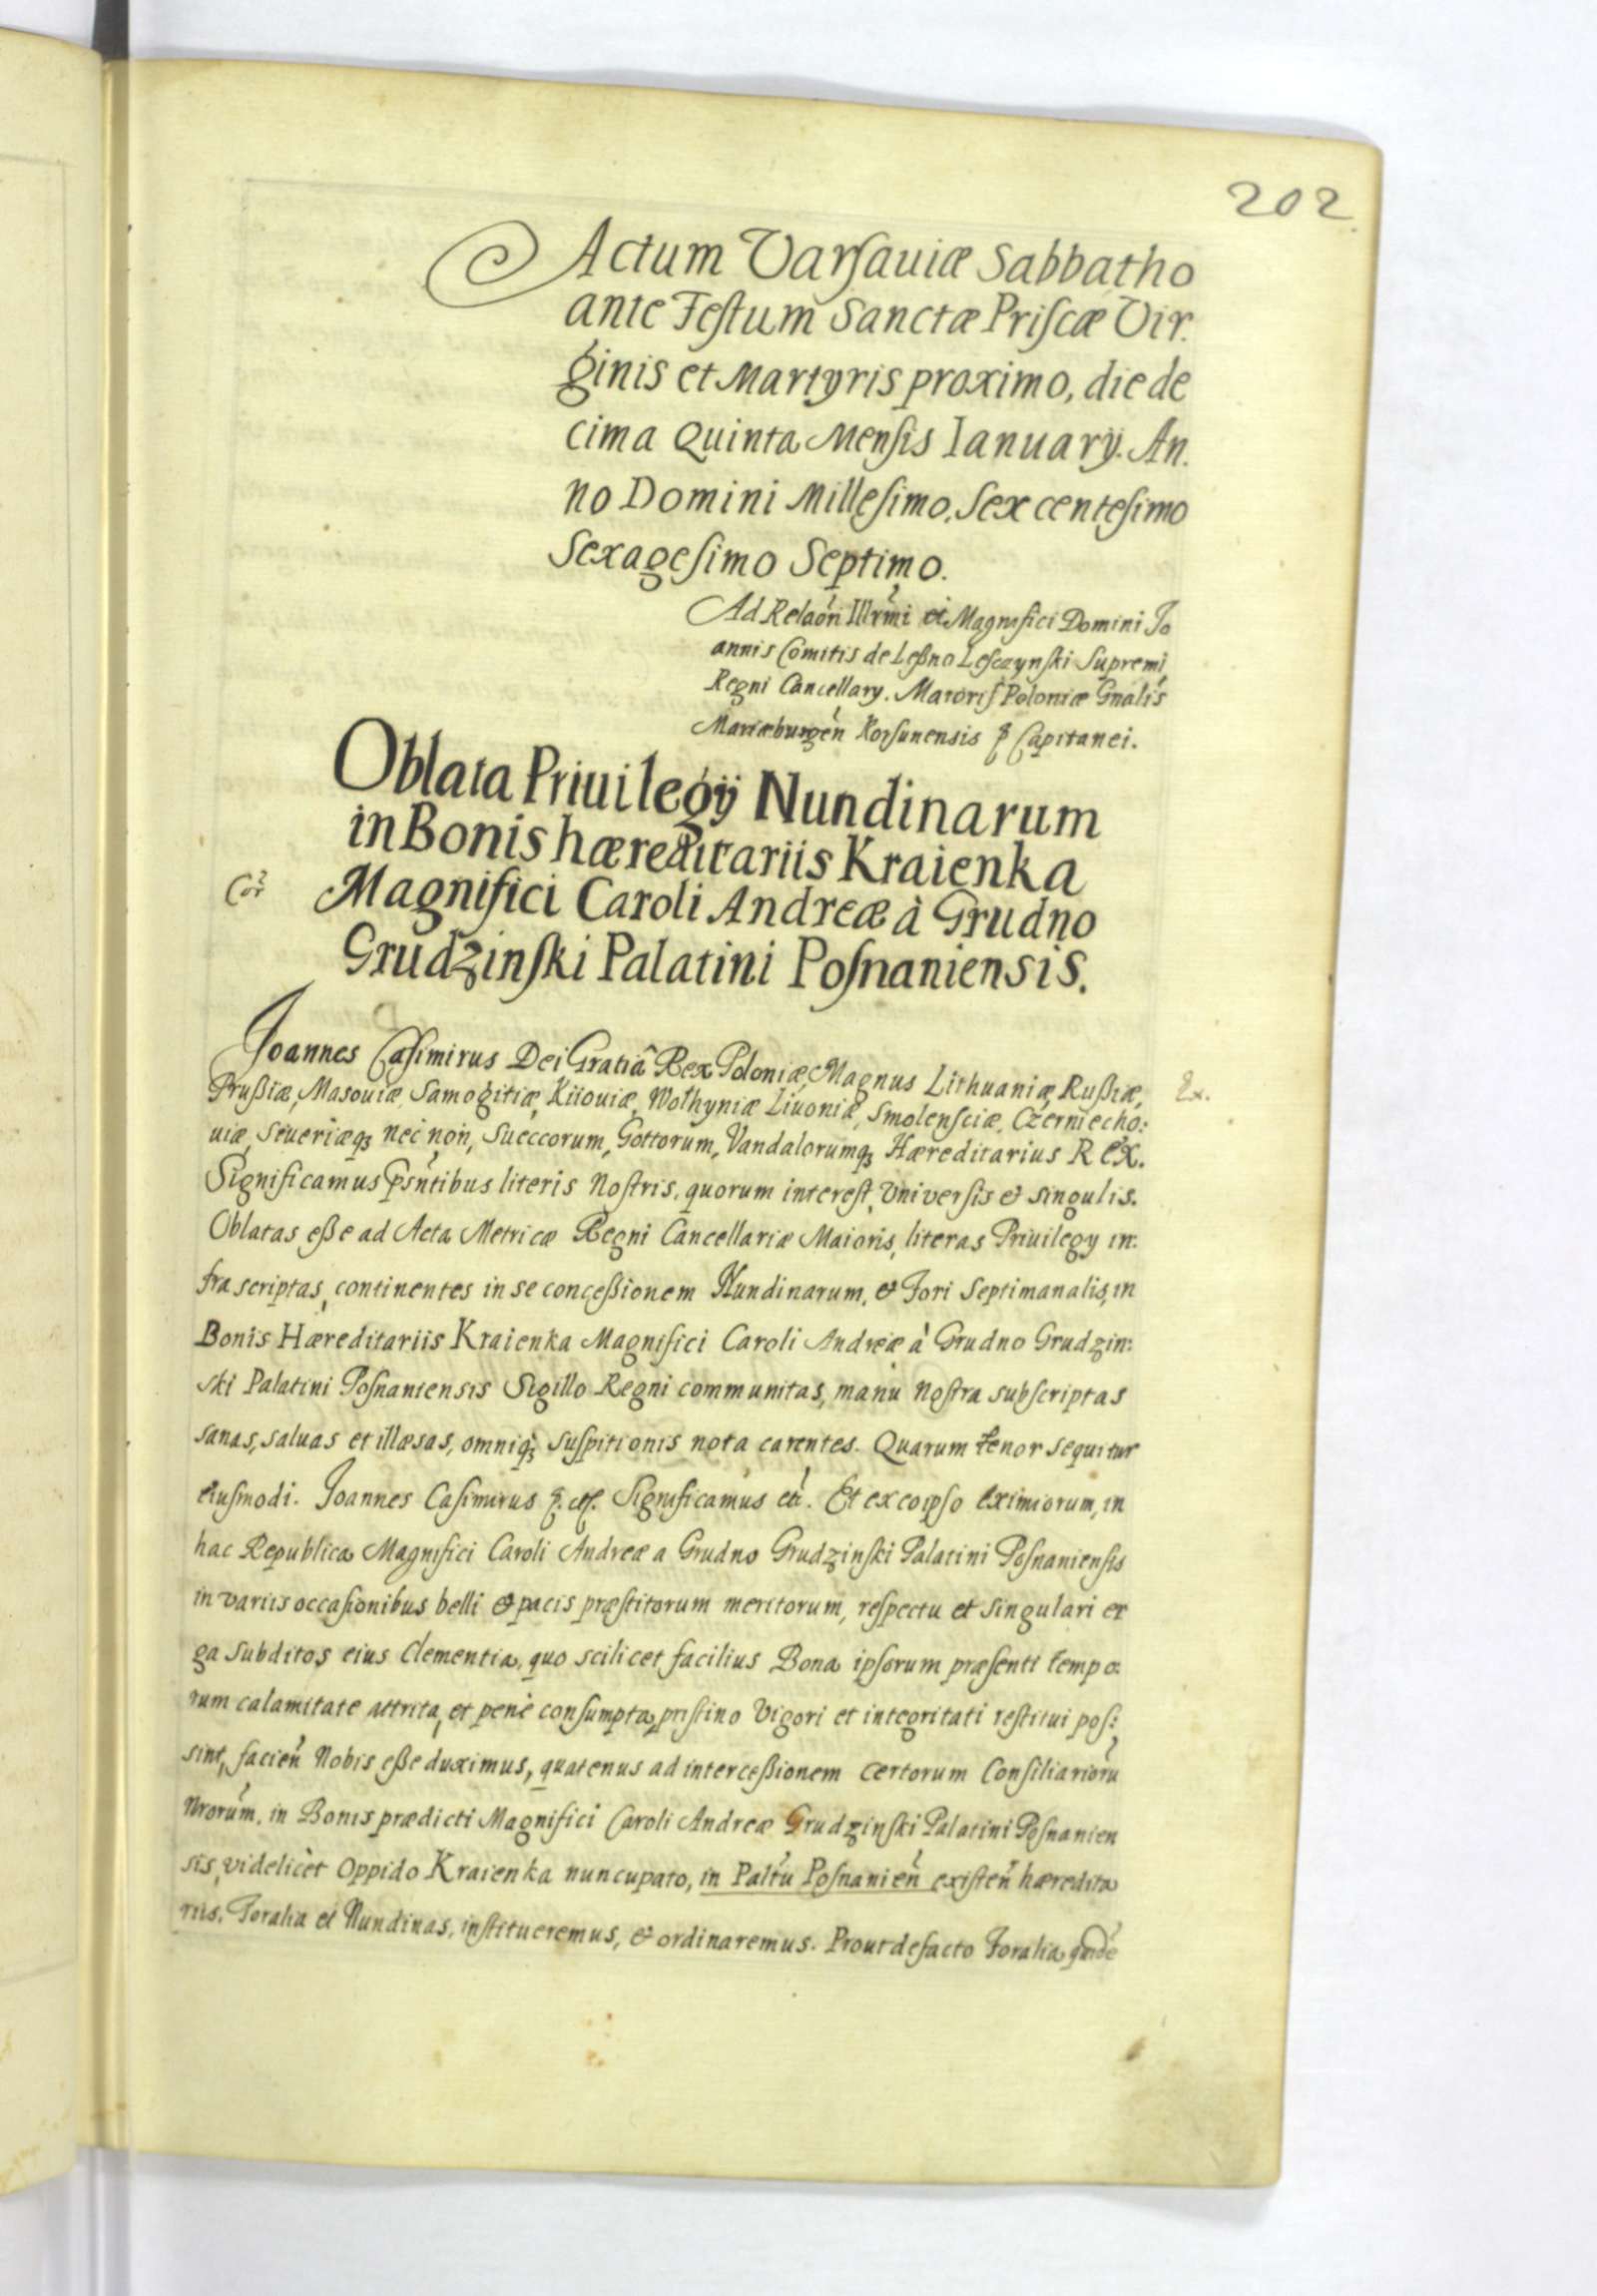 202
Actum Varsauiæ Sabbatho
ante Festum Sanctæ Priscæ Vir.
ginis et Martyris proximo, die de
cima Quinta Mensis Ianuarÿ. An.
no Domini Millesimo, Sexcentesimo
Sexagesimo Septimo.
Ad Relaon̄ Illrm̄i et Magnifici Domini Jo
annis Comitis de Leßno Lesczynski Supremi
Regni Cancellary. Maioris Poloniæ Gnalis
Mariæburgen̄ Korsunensis Capitanei.
Oblata Priuilegÿ Nundinarum
in Bonis hæreditariis Kraienka
Cor Magnifici Caroli Andreæ à Grudno
Grudzinski Palatini Posnaniensis.
Joannes Casimirus Dei Gratiâ Rex Poloniæ, Magnus Lithuaniæ, Rußiæ, Ex.
Prußiæ, Masouiæ, Samogitiæ, Kiiouiæ, Wolhyniæ Liuoniæ, Smolensciæ, Czerniecho:
uiæ, Seueriæq3 nec non, Sueccorum, Gottorum, Vandalorumq3 Hæreditarius Rex.
Significamus Psn̄tibus literis Nostris, quorum interest, Vniversis & singulis.
Oblatas eße ad Acta Metricæ Regni Cancellariæ Maioris, literas Priuilegy in:
fra scriptas, continentes in se conceßionem Nundinarum, & Fori Septimanalis, in
Bonis Hæreditariis Kraienka Magnifici Caroli Andreæ à Grudno Grudzin:
ski Palatini Posnaniensis Sigillo Regni communitas, manu Nostra subscriptas
sanas, saluas et illæsas, omniq3 suspitionis nota carentes. Quarum tenor sequitur
eiusmodi. Joannes Casimirus Significamus etc̄. Et ex eo ipso eximiorum, in
hac Republica Magnifici Caroli Andreæ a Grudno Grudzinski Palatini Posnaniensis
in variis occasionibus belli & pacis præstitorum meritorum, respectu et singulari er
ga subditos eius Clementia, quo scilicet facilius Bona ipsorum præsenti tempo:
rum calamitate attrita, et penè consumpta, pristino Vigori et integritati restitui pos:
sint, facien̄ Nobis eße duximus, quatenus ad interceßionem certorum Consiliariorū
Nrorum̄, in Bonis prædicti Magnifici Caroli Andreæ Grudzinski Palatini Posnanien
sis, videlicet Oppido Kraienka nuncupato, in Paltu Posnanien̄ existen̄ hæredita
riis, Foralia et Nundinas, institueremus, & ordinaremus. Prout de facto Foralia quidē